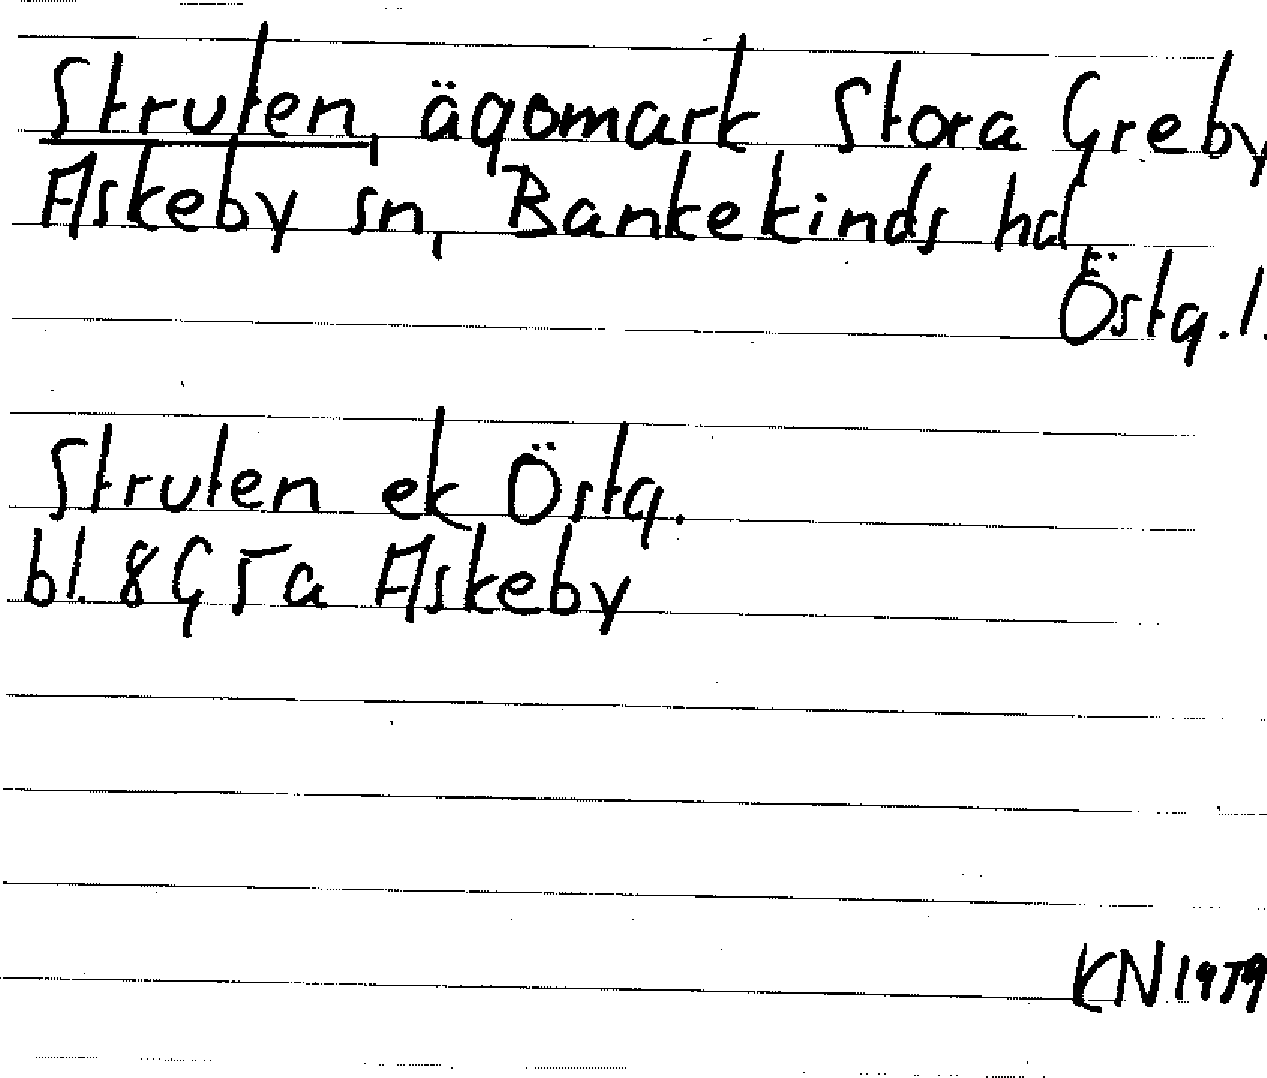 Struten, ägomark Stora Greby
Askeby sn, Bankekinds hd
Östg. l.
Struten ek Östg.
bl. 8G 5a Askeby
KN 1979